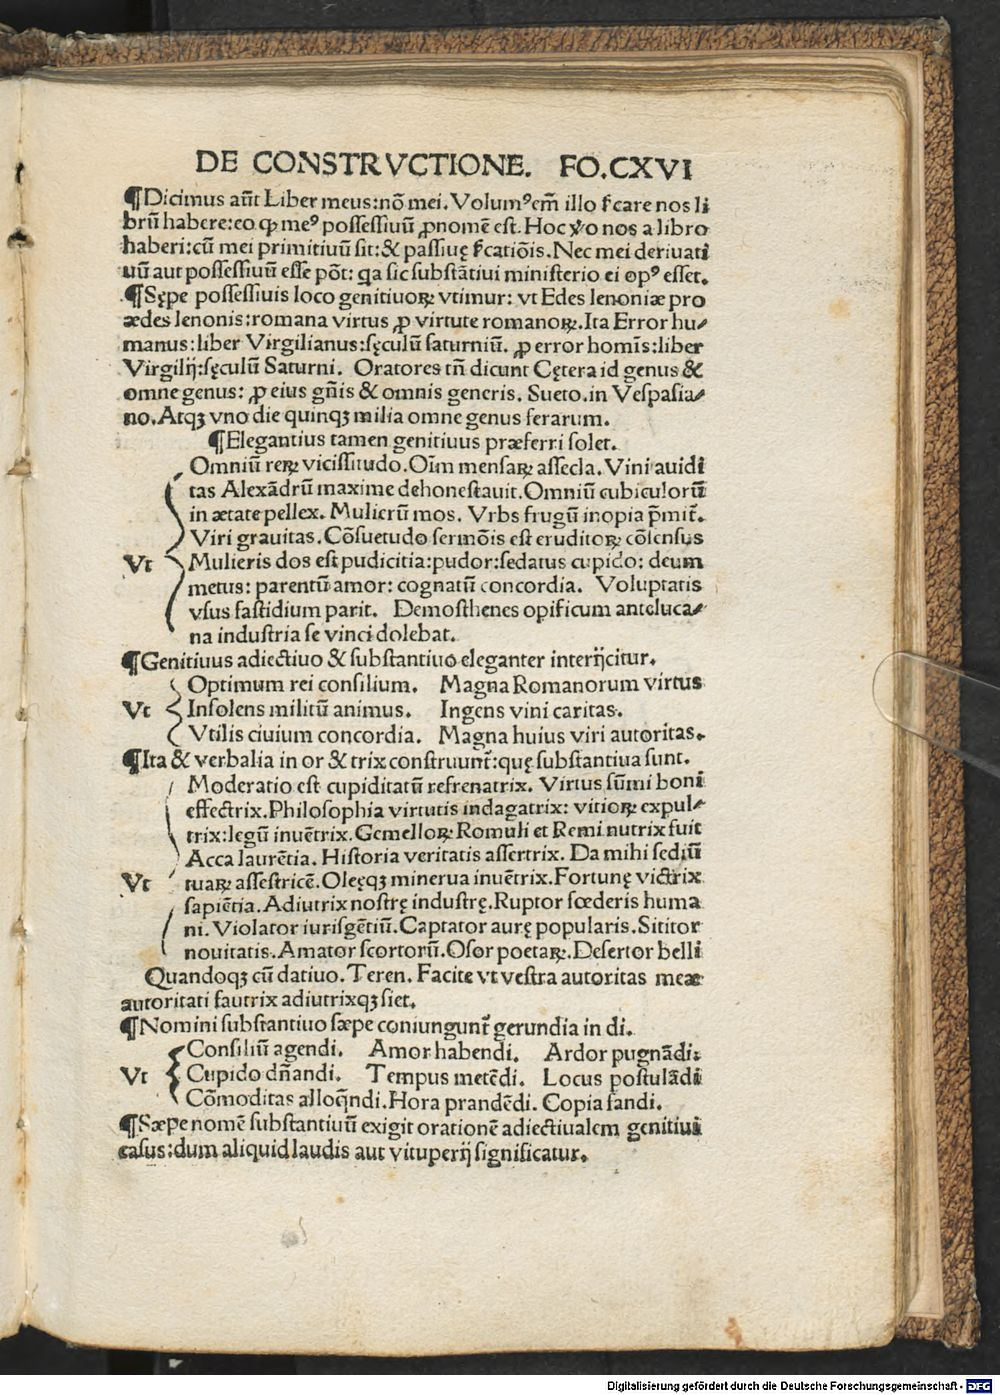 DE CONSTRVCTIONE. FO.CXVI
¶Dicimus aũt Liber meus:nõ mei. Volumꝰem̃ illo ſ̃care nos li
brũ habere:eo ꝙ meꝰ poſſeſſiuũ ꝓnomẽ eſt. Hoc ỽo nos a libro
haberi:cũ mei primitiuũ ſit:& paſſiuę ſ̃catiõis. Nec mei deriuati
uũ aut poſſeſſiuũ eſſe põt: qa ſic ſubſtãtiui miniſterio ei opꝰ eſſet.
¶Sępe poſſeſſiuis loco genitiuoꝝ vtimur: vt Edes lenoniæ pro
ædes lenonis:romana virtus ꝓ virtute romanoꝝ. Ita Error hu⸗
manus:liber Virgilianus:ſęculũ ſaturniũ. ꝓ error homĩs:liber
Virgilij:ſęculũ Saturni. Oratores tñ dicunt Cętera id genus &
omne genus: ꝓ eius gñis & omnis generis. Sueto.in Veſpaſia⸗
no.Atqꝫ vno die quinqꝫ milia omne genus ferarum.
¶Elegantius tamen genitiuus præferri ſolet.
Omniũ reꝝ viciſſitudo.Oĩm menſaꝝ aſſecla. Vini auidi
tas Alexãdrũ maxime dehoneſtauit.Omniũ cubiculorũ
in ætate pellex. Mulierũ mos. Vrbs frugũ inopia p̃mit̃.
Viri grauitas. Cõſuetudo ſermõis eſt eruditoꝝ cõſenſus
Vt Mulieris dos eſt pudicitia:pudor:ſedatus cupido: deum
metus: parentũ amor: cognatũ concordia. Voluptatis
vſus faſtidium parit. Demoſthenes opificum anteluca⸗
na induſtria ſe vinci dolebat.
¶Genitiuus adiectiuo & ſubſtantiuo eleganter interijcitur.
Optimum rei conſilium. Magna Romanorum virtus
Vt Inſolens militũ animus. Ingens vini caritas.
Vtilis ciuium concordia. Magna huius viri autoritas.
¶Ita & verbalia in or & trix conſtruunt̃:quę ſubſtantiua ſunt.
Moderatio eſt cupiditatũ refrenatrix. Virtus ſũmi boni
effectrix.Philoſophia virtutis indagatrix: vitioꝝ expul⸗
trix:legũ inuẽtrix.Gemelloꝝ Romuli et Remi nutrix fuit
Acca laurẽtia. Hiſtoria veritatis aſſertrix. Da mihi ſediũ
Vt tuaꝝ aſſeſtricẽ.Oleęqꝫ minerua inuẽtrix.Fortunę victrix
ſapiẽtia.Adiutrix noſtrę induſtrę.Ruptor fœderis huma
ni. Violator iuriſgẽtiũ. Captator aurę popularis. Sititor
nouitatis. Amator ſcortorũ.Oſor poetaꝝ.Deſertor belli
Quandoqꝫ cũ datiuo. Teren. Facite vt veſtra autoritas meæ
autoritati fautrix adiutrixqꝫ ſiet.
¶Nomini ſubſtantiuo ſæpe coniungunt̃ gerundia in di.
Conſiliũ agendi. Amor habendi. Ardor pugnãdi:
Vt Cupido dñandi. Tempus metẽdi. Locus poſtulãdi
Cõmoditas alloq̃ndi.Hora prandẽdi. Copia fandi.
¶Sæpe nomẽ ſubſtantiuũ exigit orationẽ adiectiualem genitiui
caſus:dum aliquid laudis aut vituperij ſignificatur.
Digitalisierung gefördert durch die Deutsche Forschungsgemeinschaft - DFG